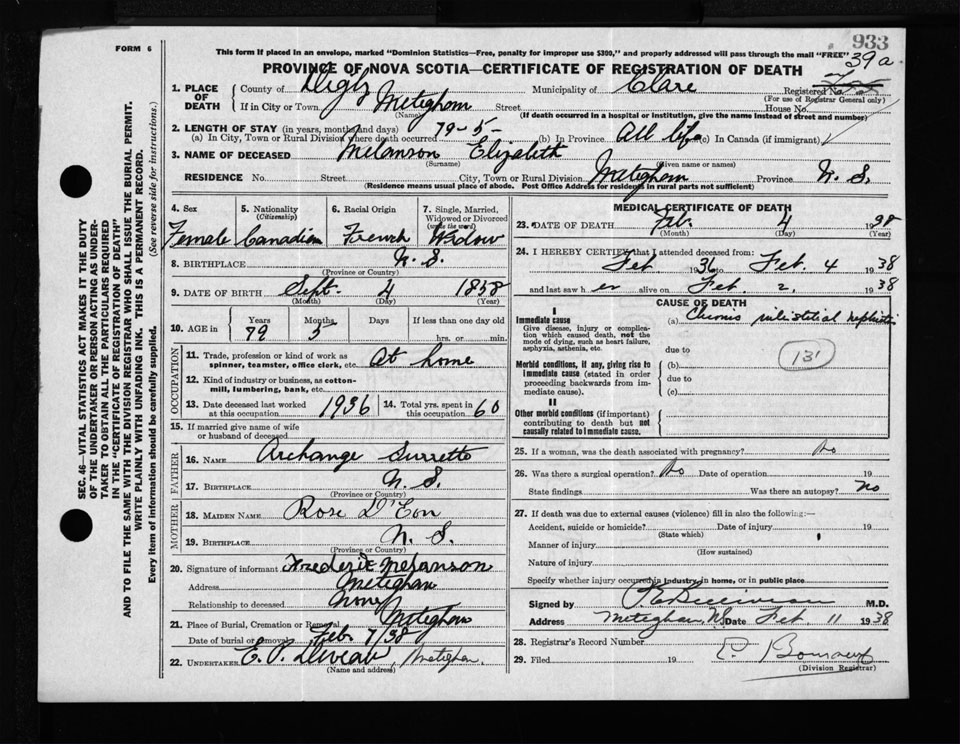 933
39a
FORM 6
This form if placed in an envelope, marked "Dominion Statistics—Free, penalty for improper use $300," and properly addressed will pass through the mail "FREE"
PROVINCE OF NOVA SCOTIA—CERTIFICATE OF REGISTRATION OF DEATH
1. PLACE OF DEATH County of Digby Municipality of Clare Registered No.
(For use of Registrar General only)
If in City or Town Meteghan Street House No.
(Name) (If death occurred in a hospital or institution, give the name instead of street and number)
2. LENGTH OF STAY (in years, months and days)
(a) In City, Town or Rural Division where death occurred 79-5- (b) In Province All life (c) In Canada (if immigrant)
3. NAME OF DECEASED Melanson Elizabeth
(Surname) (Given name or names)
RESIDENCE No. Street City, Town or Rural Division Meteghan Province N. S.
(Residence means usual place of abode. Post Office Address for residents in rural parts not sufficient)
4. Sex Female
5. Nationality (Citizenship) Canadian
6. Racial Origin French
7. Single, Married, Widowed or Divorced (write the word) Widow
8. BIRTHPLACE N. S.
(Province or Country)
9. DATE OF BIRTH Sept. 4 1858
(Month) (Day) (Year)
10. AGE in Years Months Days If less than one day old
79 5 hrs. or min.
OCCUPATION
11. Trade, profession or kind of work as spinner, teamster, office clerk, etc. At home
12. Kind of industry or business, as cotton-mill, lumbering, bank, etc.
13. Date deceased last worked at this occupation 1936
14. Total yrs. spent in this occupation 60
15. If married give name of wife or husband of deceased
FATHER
16. NAME Archange Surrette
17. BIRTHPLACE N. S.
(Province or Country)
MOTHER
18. MAIDEN NAME Rose D'Eon
19. BIRTHPLACE N. S.
(Province or Country)
20. Signature of informant Frederic Melanson
Address Meteghan
Relationship to deceased None
21. Place of Burial, Cremation or Removal Meteghan
Date of burial or removal Feb. 7/38
22. UNDERTAKER E. P. Deveau, Meteghan.
(Name and address)
MEDICAL CERTIFICATE OF DEATH
23. DATE OF DEATH Feb. 4 1938
(Month) (Day) (Year)
24. I HEREBY CERTIFY that I attended deceased from:
Feb 1936 to Feb. 4 1938
and last saw her alive on Feb. 2. 1938
CAUSE OF DEATH
I
Immediate cause
Give disease, injury or complication which caused death, not the mode of dying, such as heart failure, asphyxia, asthenia, etc.
(a) Chronic interstitial nephritis
due to
131
Morbid conditions, if any, giving rise to immediate cause (stated in order proceeding backwards from immediate cause).
(b)
due to
(c)
II
Other morbid conditions (if important) contributing to death but not causally related to immediate cause.
25. If a woman, was the death associated with pregnancy? No
26. Was there a surgical operation? No Date of operation 19
State findings Was there an autopsy? No
27. If death was due to external causes (violence) fill in also the following:—
Accident, suicide or homicide? Date of injury 19
(State which)
Manner of injury
(How sustained)
Nature of injury
Specify whether injury occurred in industry, in home, or in public place
Signed by M.D.
Address Meteghan, N.S. Date Feb 11 1938
28. Registrar's Record Number
29. Filed 19
(Division Registrar)
SEC. 46—VITAL STATISTICS ACT MAKES IT THE DUTY
OF THE UNDERTAKER OR PERSON ACTING AS UNDER-
TAKER TO OBTAIN ALL THE PARTICULARS REQUIRED
IN THE "CERTIFICATE OF REGISTRATION OF DEATH"
AND TO FILE THE SAME WITH THE DIVISION REGISTRAR WHO SHALL ISSUE THE BURIAL PERMIT.
WRITE PLAINLY WITH UNFADING INK. THIS IS A PERMANENT RECORD.
Every item of information should be carefully supplied. (See reverse side for instructions.)